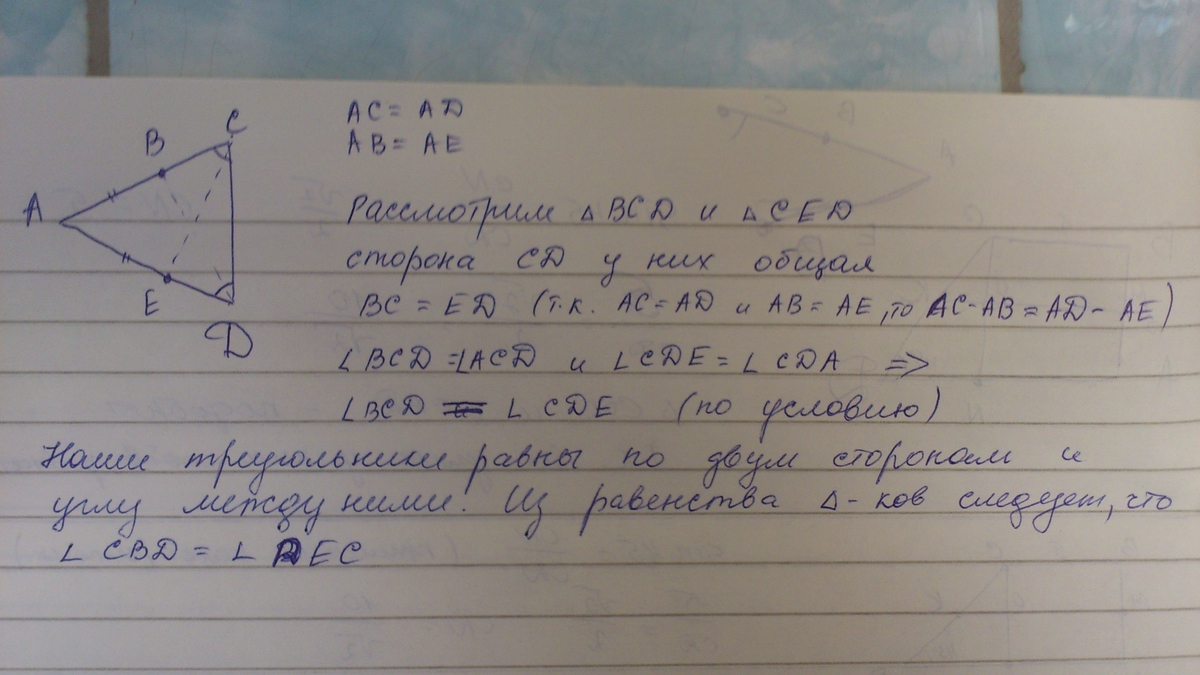 A
B
C
E
D
AC = AD
AB = AE
Рассмотрим △ BCD и △ CED
сторона CD у них общая
BC = ED (т.к. AC = AD и AB = AE, то AC - AB = AD - AE)
∠ BCD = ∠ACD и ∠ CDE = ∠ CDA =>
∠BCD = ∠ CDE (по условию)
Наши треугольники равны по двум сторонам и
углу между ними. Из равенства △-ков следует, что
∠ CBD = ∠ DEC